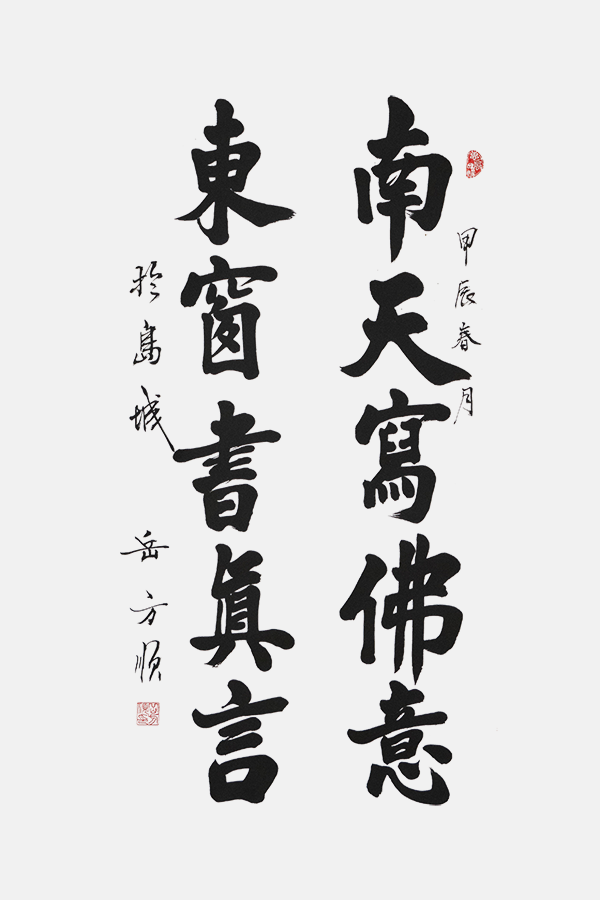 甲辰春月
南天寫佛意
東窗書眞言
於島城
岳方順